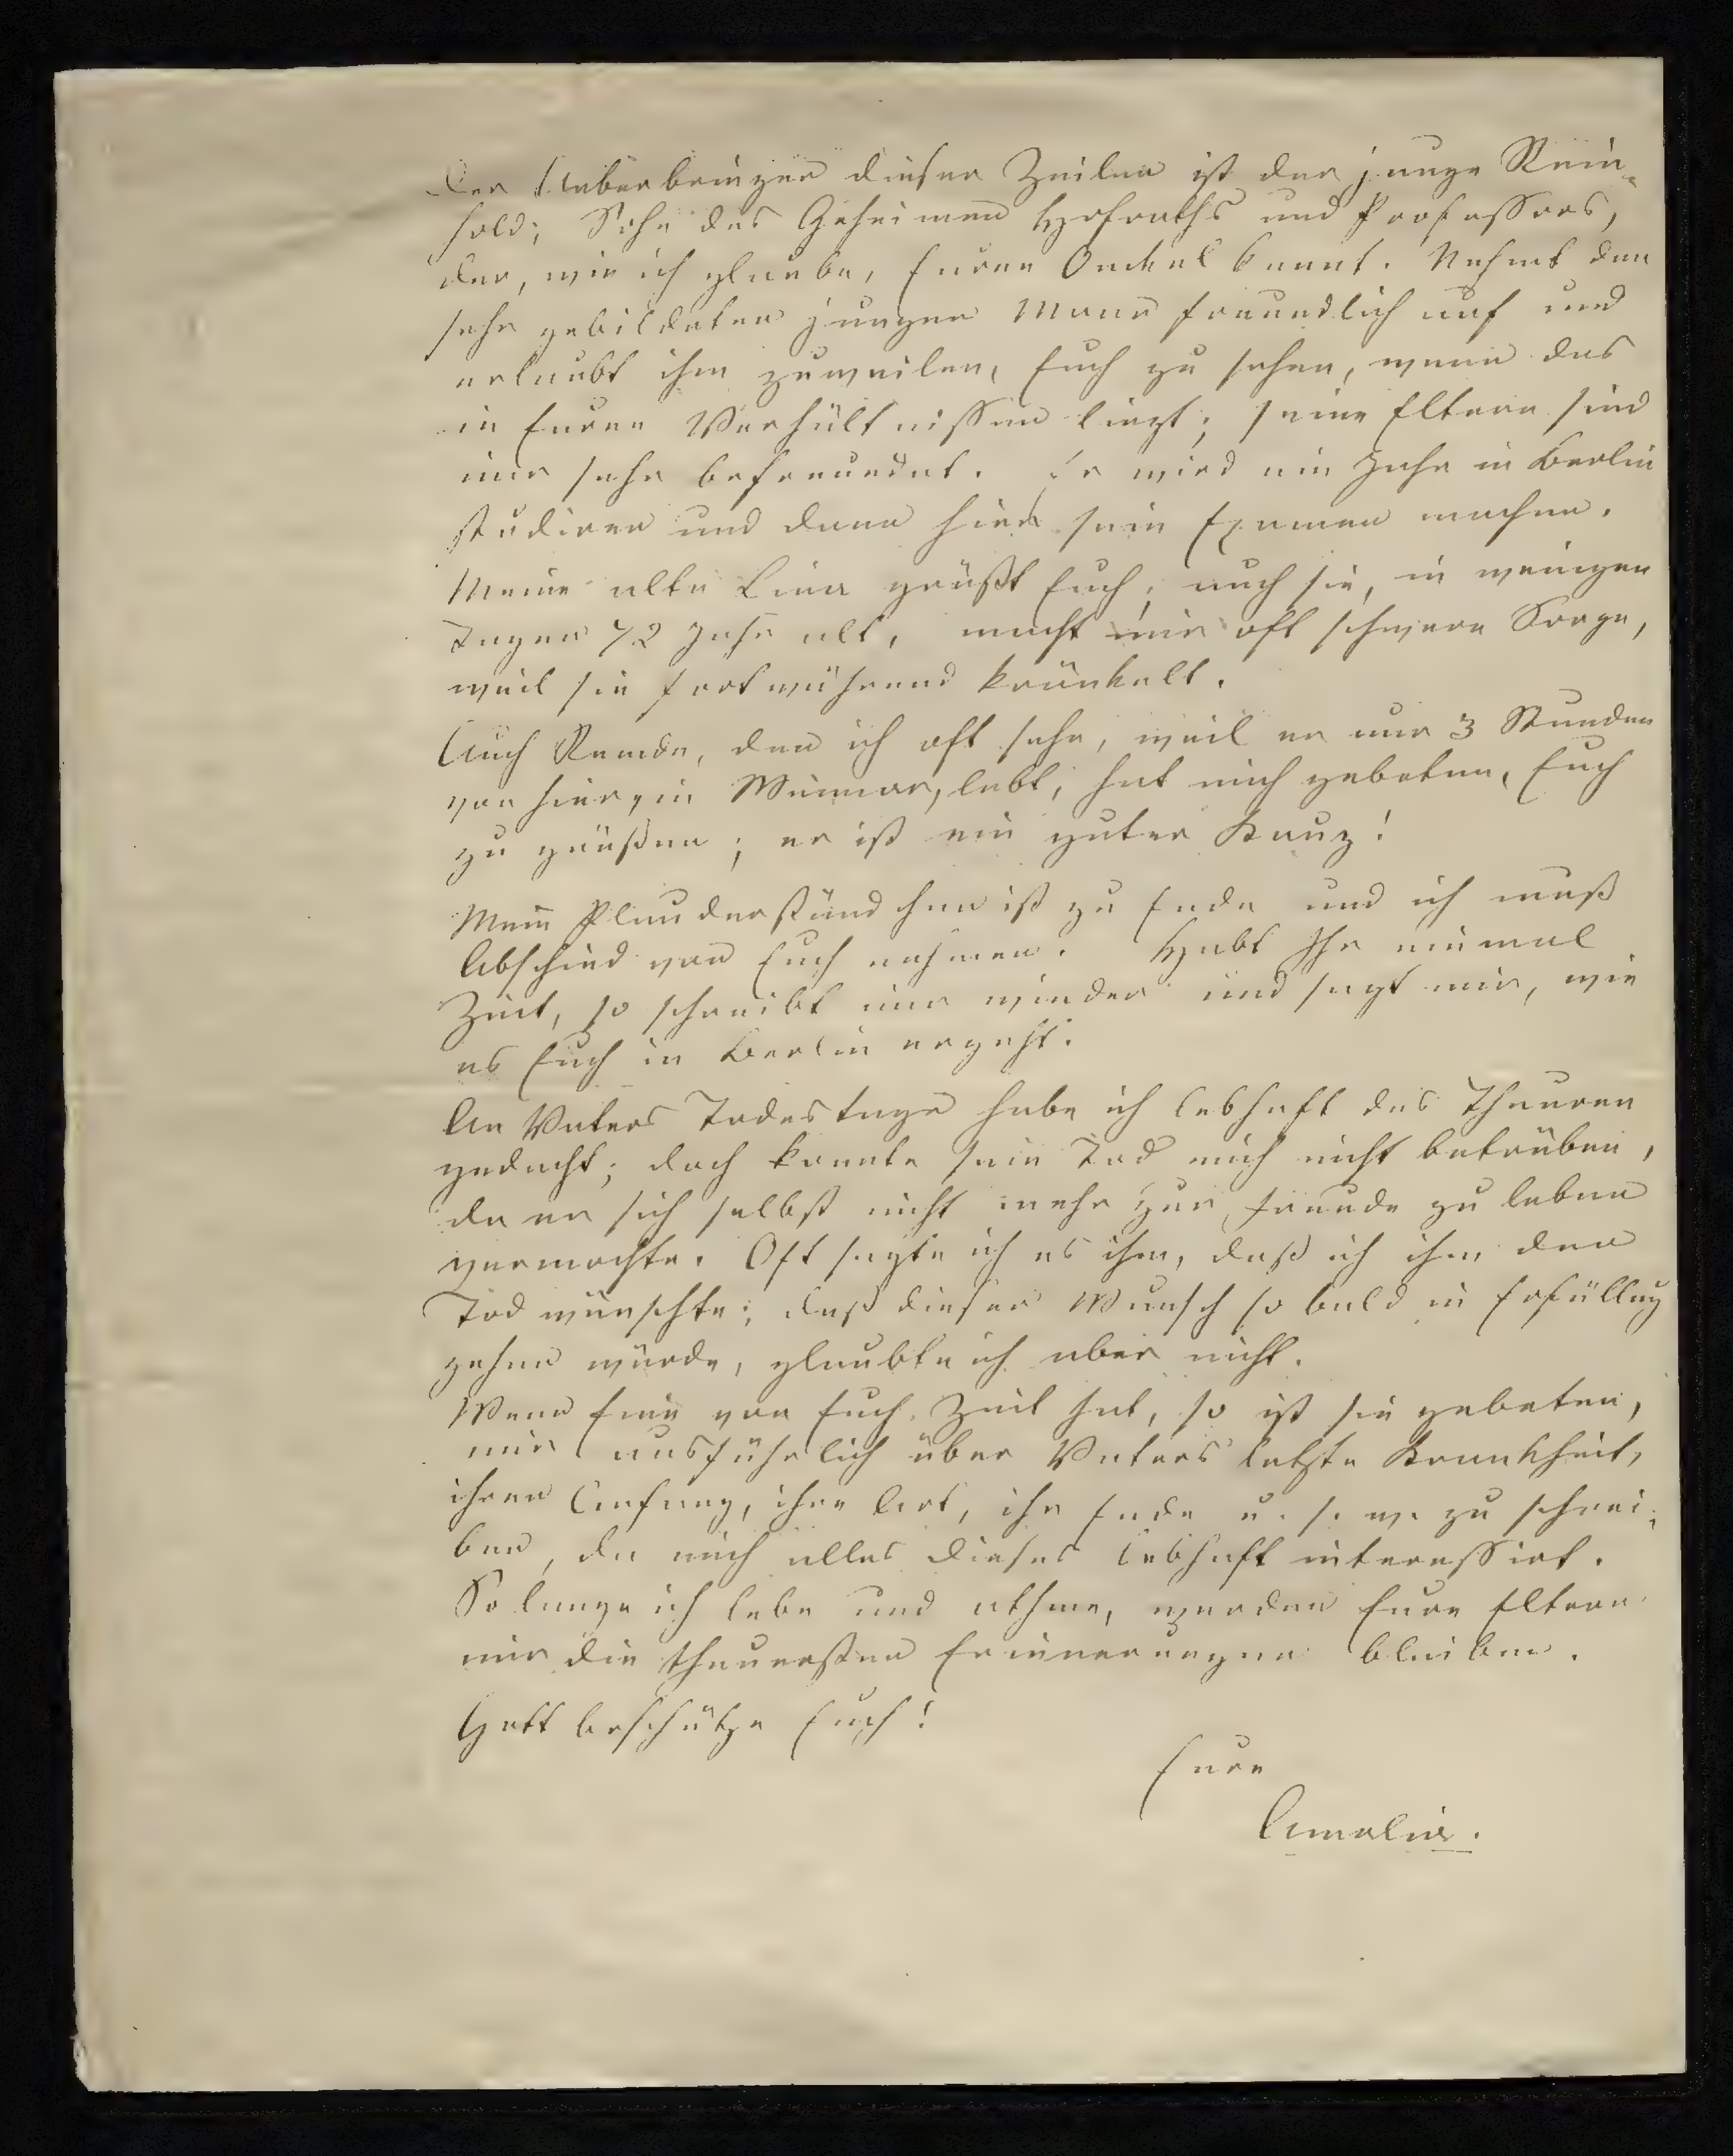 Der Ueberbringer dieser Zeilen ist der junge Rein-
hold; Sohn des Geheimen Hofraths und Professors,
der, wie ich glaube, Euren Onckel kennt. Nehmt den
sehr gebildeten jungen Mann freundlich auf und
erlaubt ihm zuweilen, Euch zu sehen, wenn das
in Euren Verhältnissen liegt; seine Eltern sind
mir sehr befreundet. Er wird ein Jahr in Berlin
studiren und dann hier sein Examen machen.
Meine alte Lina grüßt Euch; auch sie, in wenigen
Tagen 72 Jahr alt, macht mir oft schwere Sorge,
weil sie fortwährend kränkelt.
Auch Remde, den ich oft sehe, weil er nur 3 Stunden
von hier, in Weimar, lebt, hat mich gebeten, Euch
zu grüßen; er ist ein guter Kauz!
Mein Plauderstündchen ist zu Ende und ich muß
Abschied von Euch nehmen. Habt Ihr einmal
Zeit, so schreibt mir wieder und sagt mir, wie
es Euch in Berlin ergeht.
An Vaters Todestage habe ich lebhaft des Theuren
gedacht; doch konnte sein Tod mich nicht betrüben,
da er sich selbst nicht mehr zur Freude zu leben
vermochte. Oft sagte ich es ihm, daß ich ihm den
Tod wünschte; daß dieser Wunsch so bald in Erfüllung
gehen würde, glaubte ich aber nicht.
Wenn Eine von Euch Zeit hat, so ist sie gebeten,
mir ausführlich über Vaters letzte Krankheit,
ihren Anfang, ihre Art, ihr Ende u. s. w. zu schrei-
ben, da mich alles dieses lebhaft interessirt.
So lange ich lebe und athme, werden Eure Eltern
mir die theuersten Erinnerungen bleiben.
Gott beschütze Euch!
Eure
Amalie.